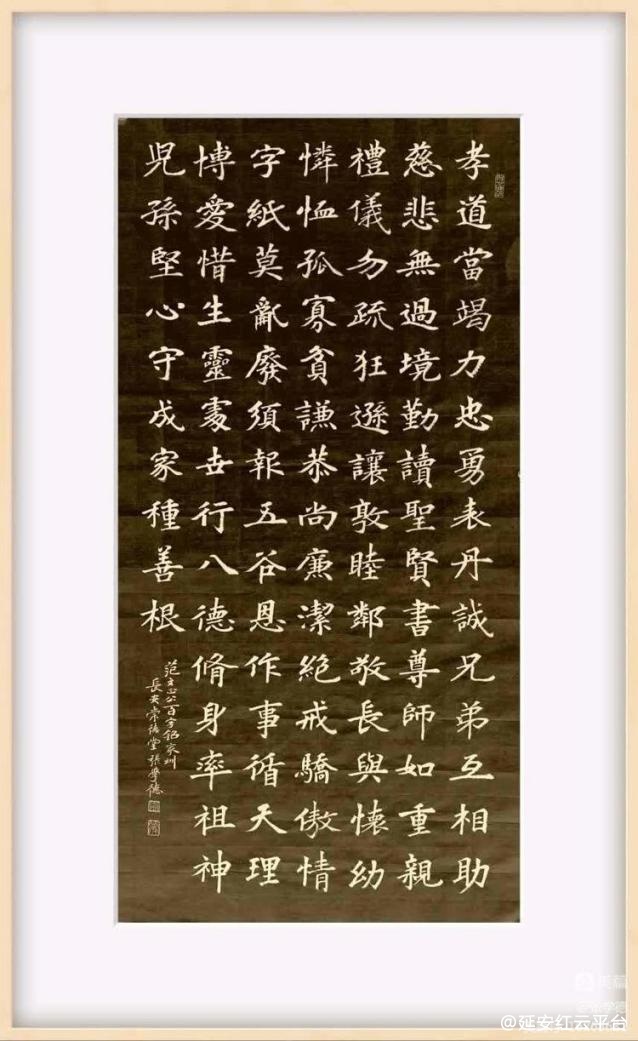 孝道當竭力忠勇表丹誠兄弟互相助
慈悲無過境勤讀聖賢書尊師如重親
禮儀勿疏狂遜讓敦睦鄰敬長與懷幼
憐恤孤寡貧謙恭尚廉潔絕戒驕傲情
字紙莫亂廢須報五谷恩作事循天理
博愛惜生靈處世行八德脩身率祖神
兒孫堅心守成家種善根
范文正公百字銘家訓
長安崇德堂張學德
@延安红云平台